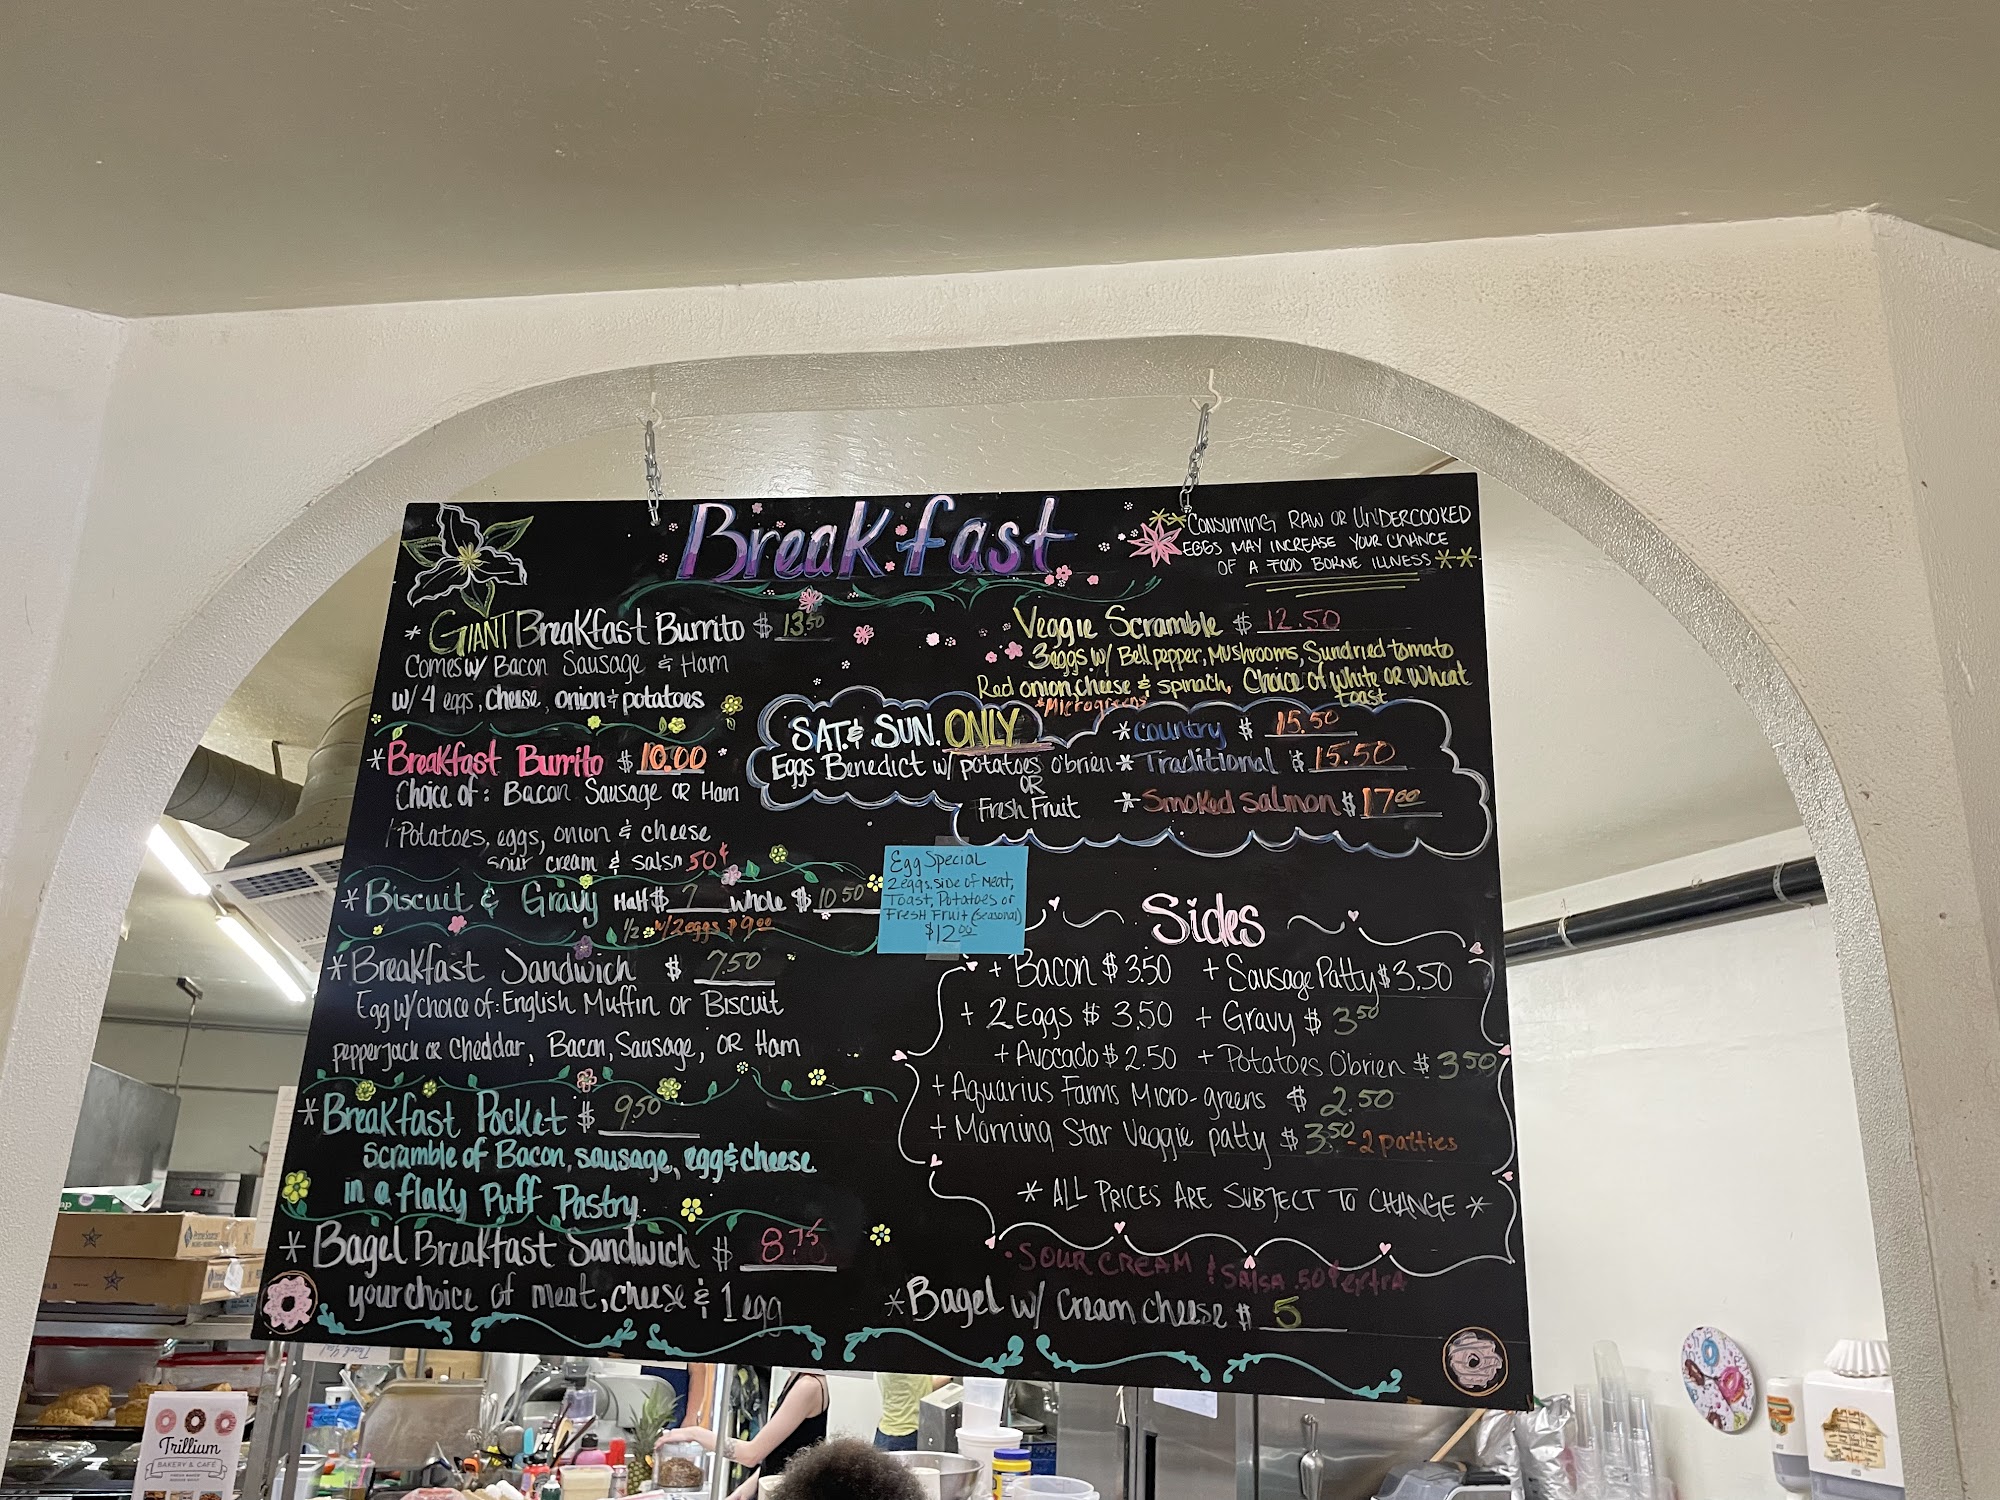 Breakfast
CONSUMING RAW OR UNDERCOOKED
EGGS MAY INCREASE YOUR CHANCE
OF A FOOD BORNE ILLNESS **
* GIANT Breakfast Burrito $ 13.50
Comes w/ Bacon Sausage & Ham
w/ 4 eggs, cheese, onion & potatoes
* Breakfast Burrito $ 10.00
Choice of: Bacon Sausage OR Ham
Potatoes, eggs, onion & cheese
sour cream & salsa 50¢
* Biscuit & Gravy Half $ 7 whole $ 10.50
1/2 w/2eggs $9.00
* Breakfast Sandwich $ 7.50
Egg w/choice of: English Muffin or Biscuit
pepperjack or Cheddar, Bacon, Sausage, OR Ham
* Breakfast Pocket $ 9.50
Scramble of Bacon, sausage, egg & cheese
in a flaky Puff Pastry.
* Bagel Breakfast Sandwich $ 8.75
your choice of meat, cheese & 1 egg
Veggie Scramble $ 12.50
3eggs w/ Bell pepper, Mushrooms, Sundried tomato
Red onion, cheese & spinach, Choice of White OR Wheat
toast
*Microgreens
SAT. & SUN. ONLY
Eggs Benedict w/ potatoes o'brien
OR
Fresh Fruit
* Country $ 15.50
* Traditional $ 15.50
* Smoked Salmon $ 17.00
Egg Special
2 eggs, side of Meat,
Toast, Potatoes or
Fresh Fruit (seasonal)
$12.00
Sides
+ Bacon $ 3.50 + Sausage Patty $ 3.50
+ 2 Eggs $ 3.50 + Gravy $ 3.50
+ Avocado $ 2.50 + Potatoes O'brien $ 3.50
+ Aquarius Farms Micro-greens $ 2.50
+ Morning Star Veggie patty $ 3.50 - 2 patties
* ALL PRICES ARE SUBJECT TO CHANGE *
• SOUR CREAM & SALSA .50¢ extra
* Bagel w/ Cream cheese $ 5
Trillium
BAKERY & CAFÉ